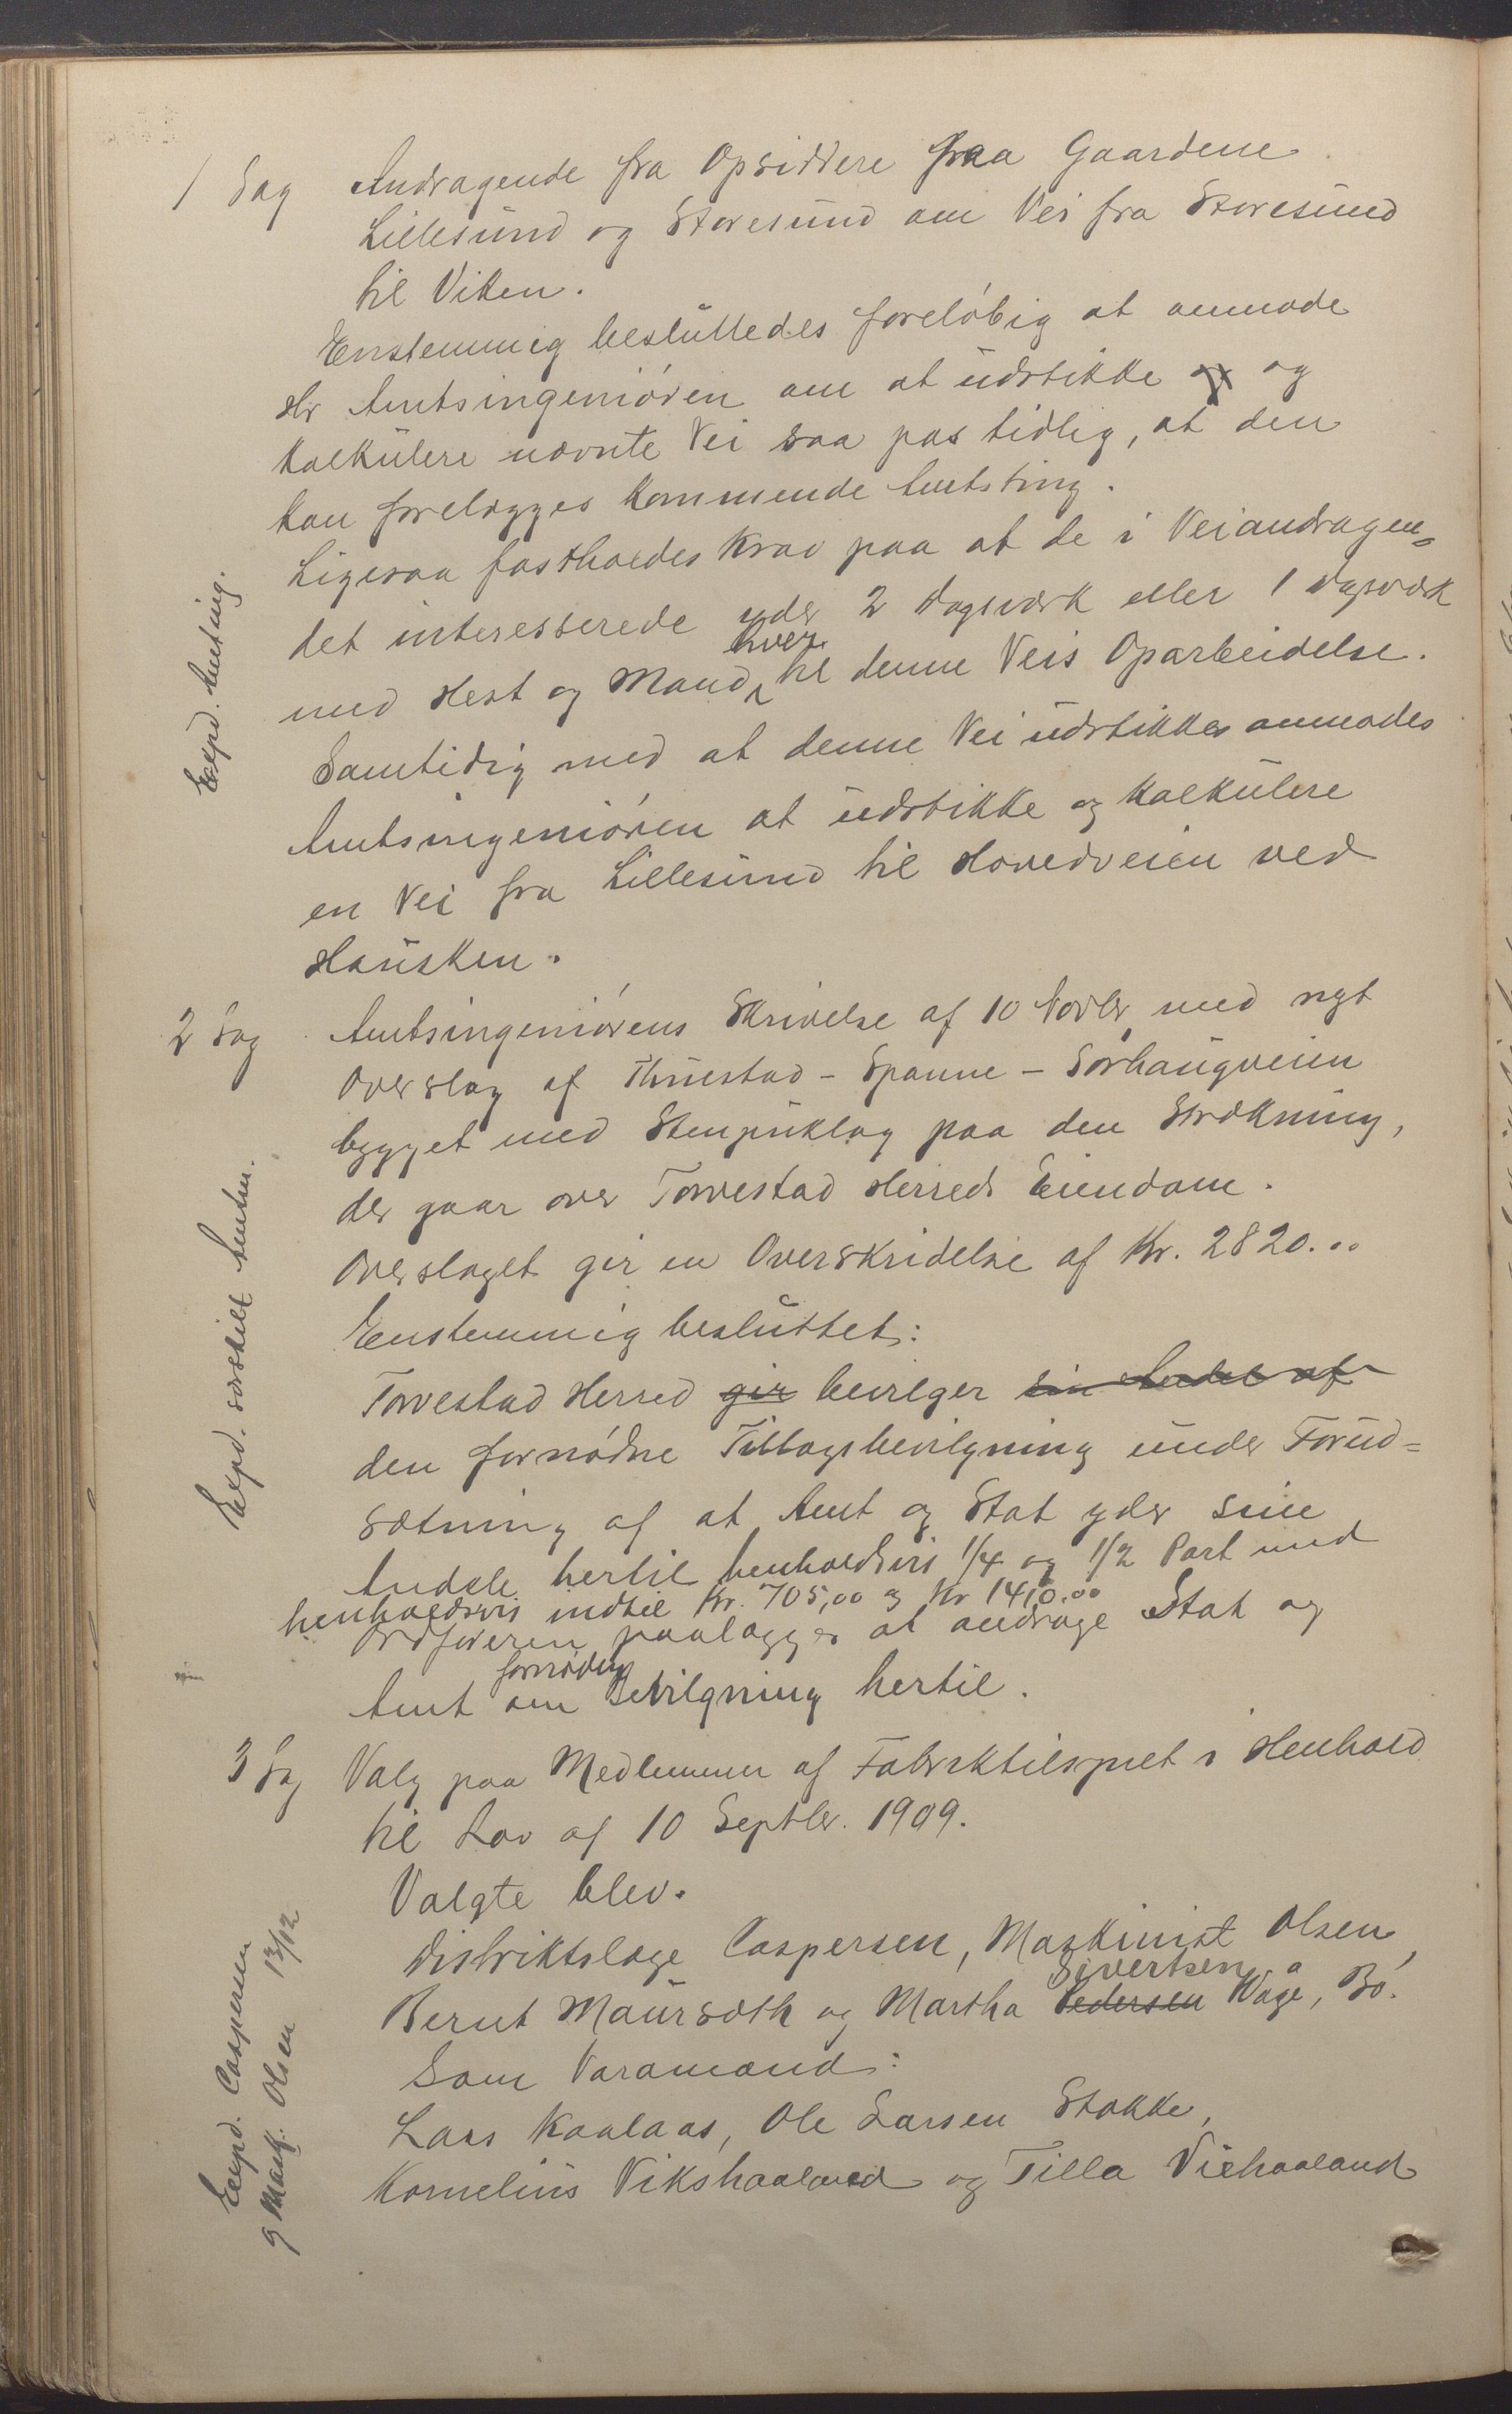 1 Sag Andragende fra Opsiddere fraa Gaardene
Lillesund og Storesund om Vei fra Storesund
til Viken.
Enstemmig besluttedes foreløbig at anmode
Hr Amtsingeniøren om at udstikke og og
kalkulere nævnte Vei saa pas tidlig, at den
kan forelægges kommende Amtsting.
Ligesaa fastholdes Krav paa at de i Veiandragen-
det interesserede yder 2 Dagsværk eller 1 Dagsværk
hver
med Hest og Mand, til denne Veis Oparbeidelse.
Samtidig med at denne Vei udstikkes anmodes
Amtsingeniøren at udstikke og kalkulere
en Vei fra Lillesund til Hovedveien ved
Hausken.
Expd. Amting.
2 Sag Amtsingeniørens Skrivelse af 10 Novbr. med nyt
Overslag af Thuestad - Spanne - Sørhaugveien
bygget med Stenpuklag paa den Strækning,
der gaar over Torvestad Herreds Eiendom.
Overslaget gir en Overskridelse af Kr. 2820.00
Enstemmig besluttet:
Torvestad Herred gir bevilger sin Andel af
den fornødne Tillægsbevilgning under Forud=
sætning af at Amt og Stat yder sine
Andele hertil henholdsvis 1/4 og 1/2 Part med
henholdsvis indtil Kr. 705,00 og Kr 1410.00
Ordføreren paalægges at andrage Stat og
fornøden
Amt om Bevilgning hertil.
Expd. særskilt Amtm.
3 Sag Valg paa Medlemmer af Fabriktilsynet i Henhold
til Lov af 10 Septbr. 1909.
Valgte blev.
Distriktslæge Caspersen, Maskinist Olsen,
Sivertsen
Bernt Maursæth og Martha Pedersen Våge, Bø.
Som Varamænd:
Lars Kaalaas, Ole Larsen Stakke,
Kornelius Vikshaaland og Tilla Viehaaland
Expd. Caspersen
og Mask. Olsen 13/12